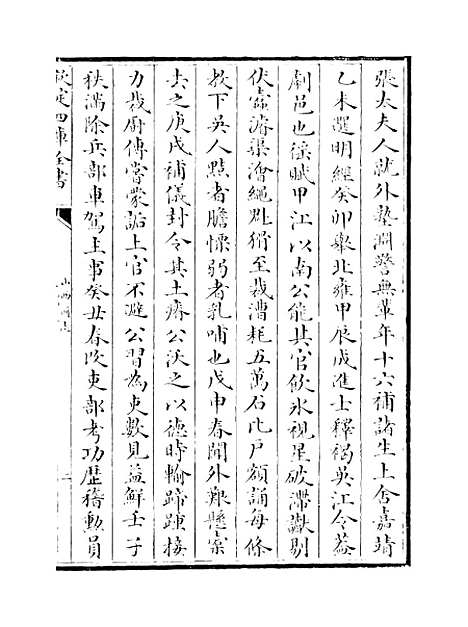 張太夫人就外塾淵警無輩年十六補諸生上舍嘉靖
乙未選明經癸卯舉北雍甲辰成進士釋褐吳江令葢
劇邑也徭賦甲江以南公能其官飲氷視星破滯獄剔
伏蠧濬渠澮繩猾至裁漕耗五萬石比戶額誦每條
教下吳人黠者膽慄弱者乳哺也戊申春聞外艱懸槖
去之庚戌補儀封令其土瘠公沃之以德時輸蹄踵接
力裁廚傳嘗蒙詬上官不避公習為吏數見益鮮壬子
秩滿除兵部車駕主事癸丑春改吏部考功歷稽勳員
欽定四庫全書